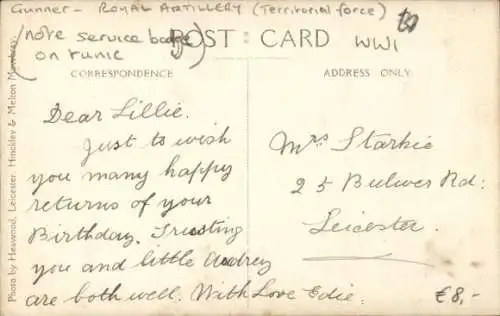 Gunner - ROYAL ARTILLERY (Territorial force)
(note service badge
on tunic)
WW1
POST CARD
CORRESPONDENCE
ADDRESS ONLY
Photo by Heawood, Leicester, Hinckley & Melton Mowbray
Dear Lillie.
Just to wish
you many happy
returns of your
Birthday. Trusting
you and little Audrey
are both well. With Love Edie.
Mrs Starkie
25 Bulwer Rd:
Leicester.
€8,-